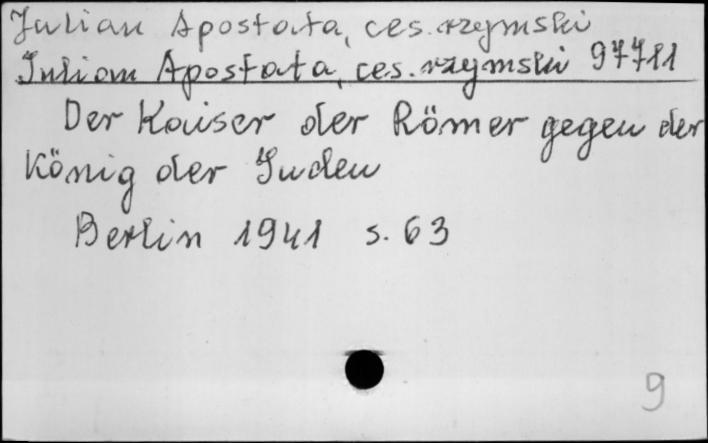 Julian Apostata, ces. rzymski
Julian Apostata, ces. rzymski 97711
Der Kaiser der Römer gegen der
König der Juden
Berlin 1941 s. 63
9